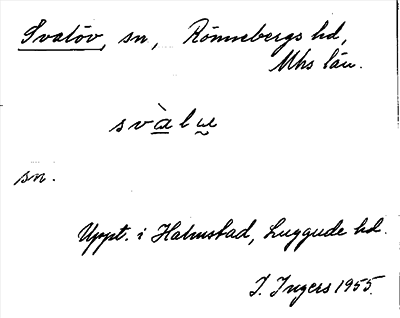 Svalöv, sn, Rönnebergs hd,
Mhs län.
svàlu̯e
sn.
Uppt. i Halmstad, Luggude hd.
I. Ingers 1955.